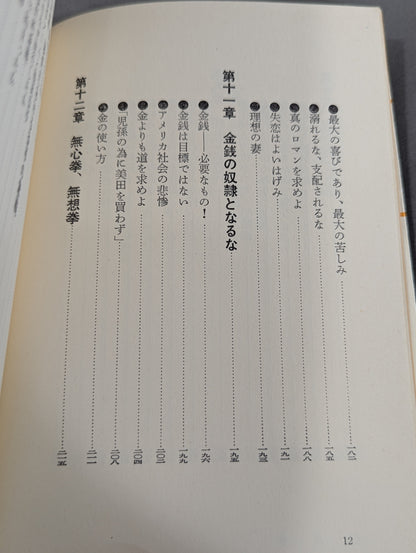 ●最大の喜びであり、最大の苦しみ……一八二
●溺れるな、支配されるな……一八五
●真のロマンを求めよ……一八八
●失恋はよいはげみ……一九一
●理想の妻……一九三
第十一章 金銭の奴隷となるな……一九五
●金銭――必要なもの!……一九六
●金銭は目標ではない……一九九
●アメリカ社会の悲惨……二〇二
●金よりも道を求めよ……二〇四
●「児孫の為に美田を買わず」……二〇八
●金の使い方……二一一
第十二章 無心拳、無想拳……二一五
12